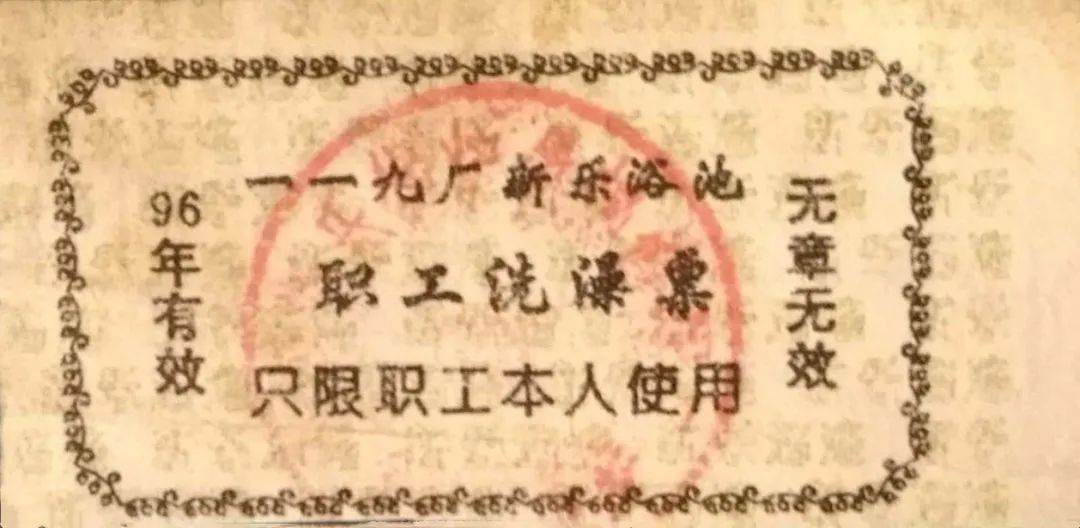 一一九厂新乐浴池
职工洗澡票
只限职工本人使用
96年有效
无章无效